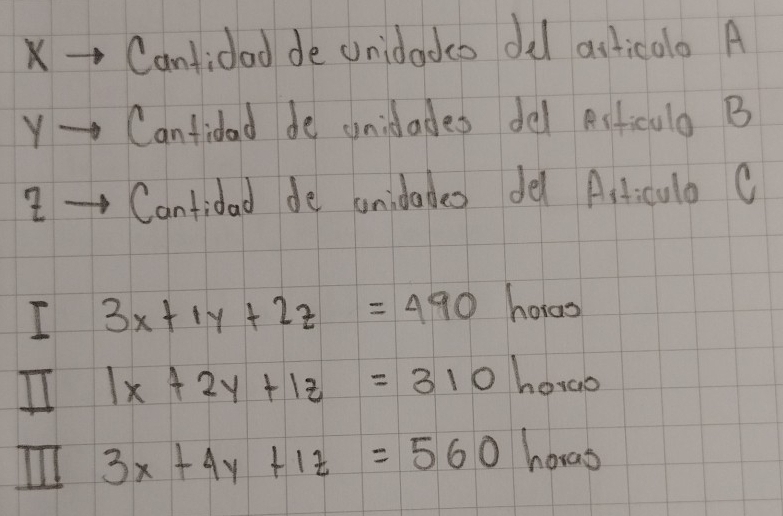 X → Cantidad de unidades del articulo A
Y → Cantidad de unidades del Articulo B
Z → Cantidad de unidades del Articulo C
I 3x + 1y + 2z = 490 horas
II 1x + 2y + 1z = 310 horas
III 3x + 4y + 1z = 560 horas